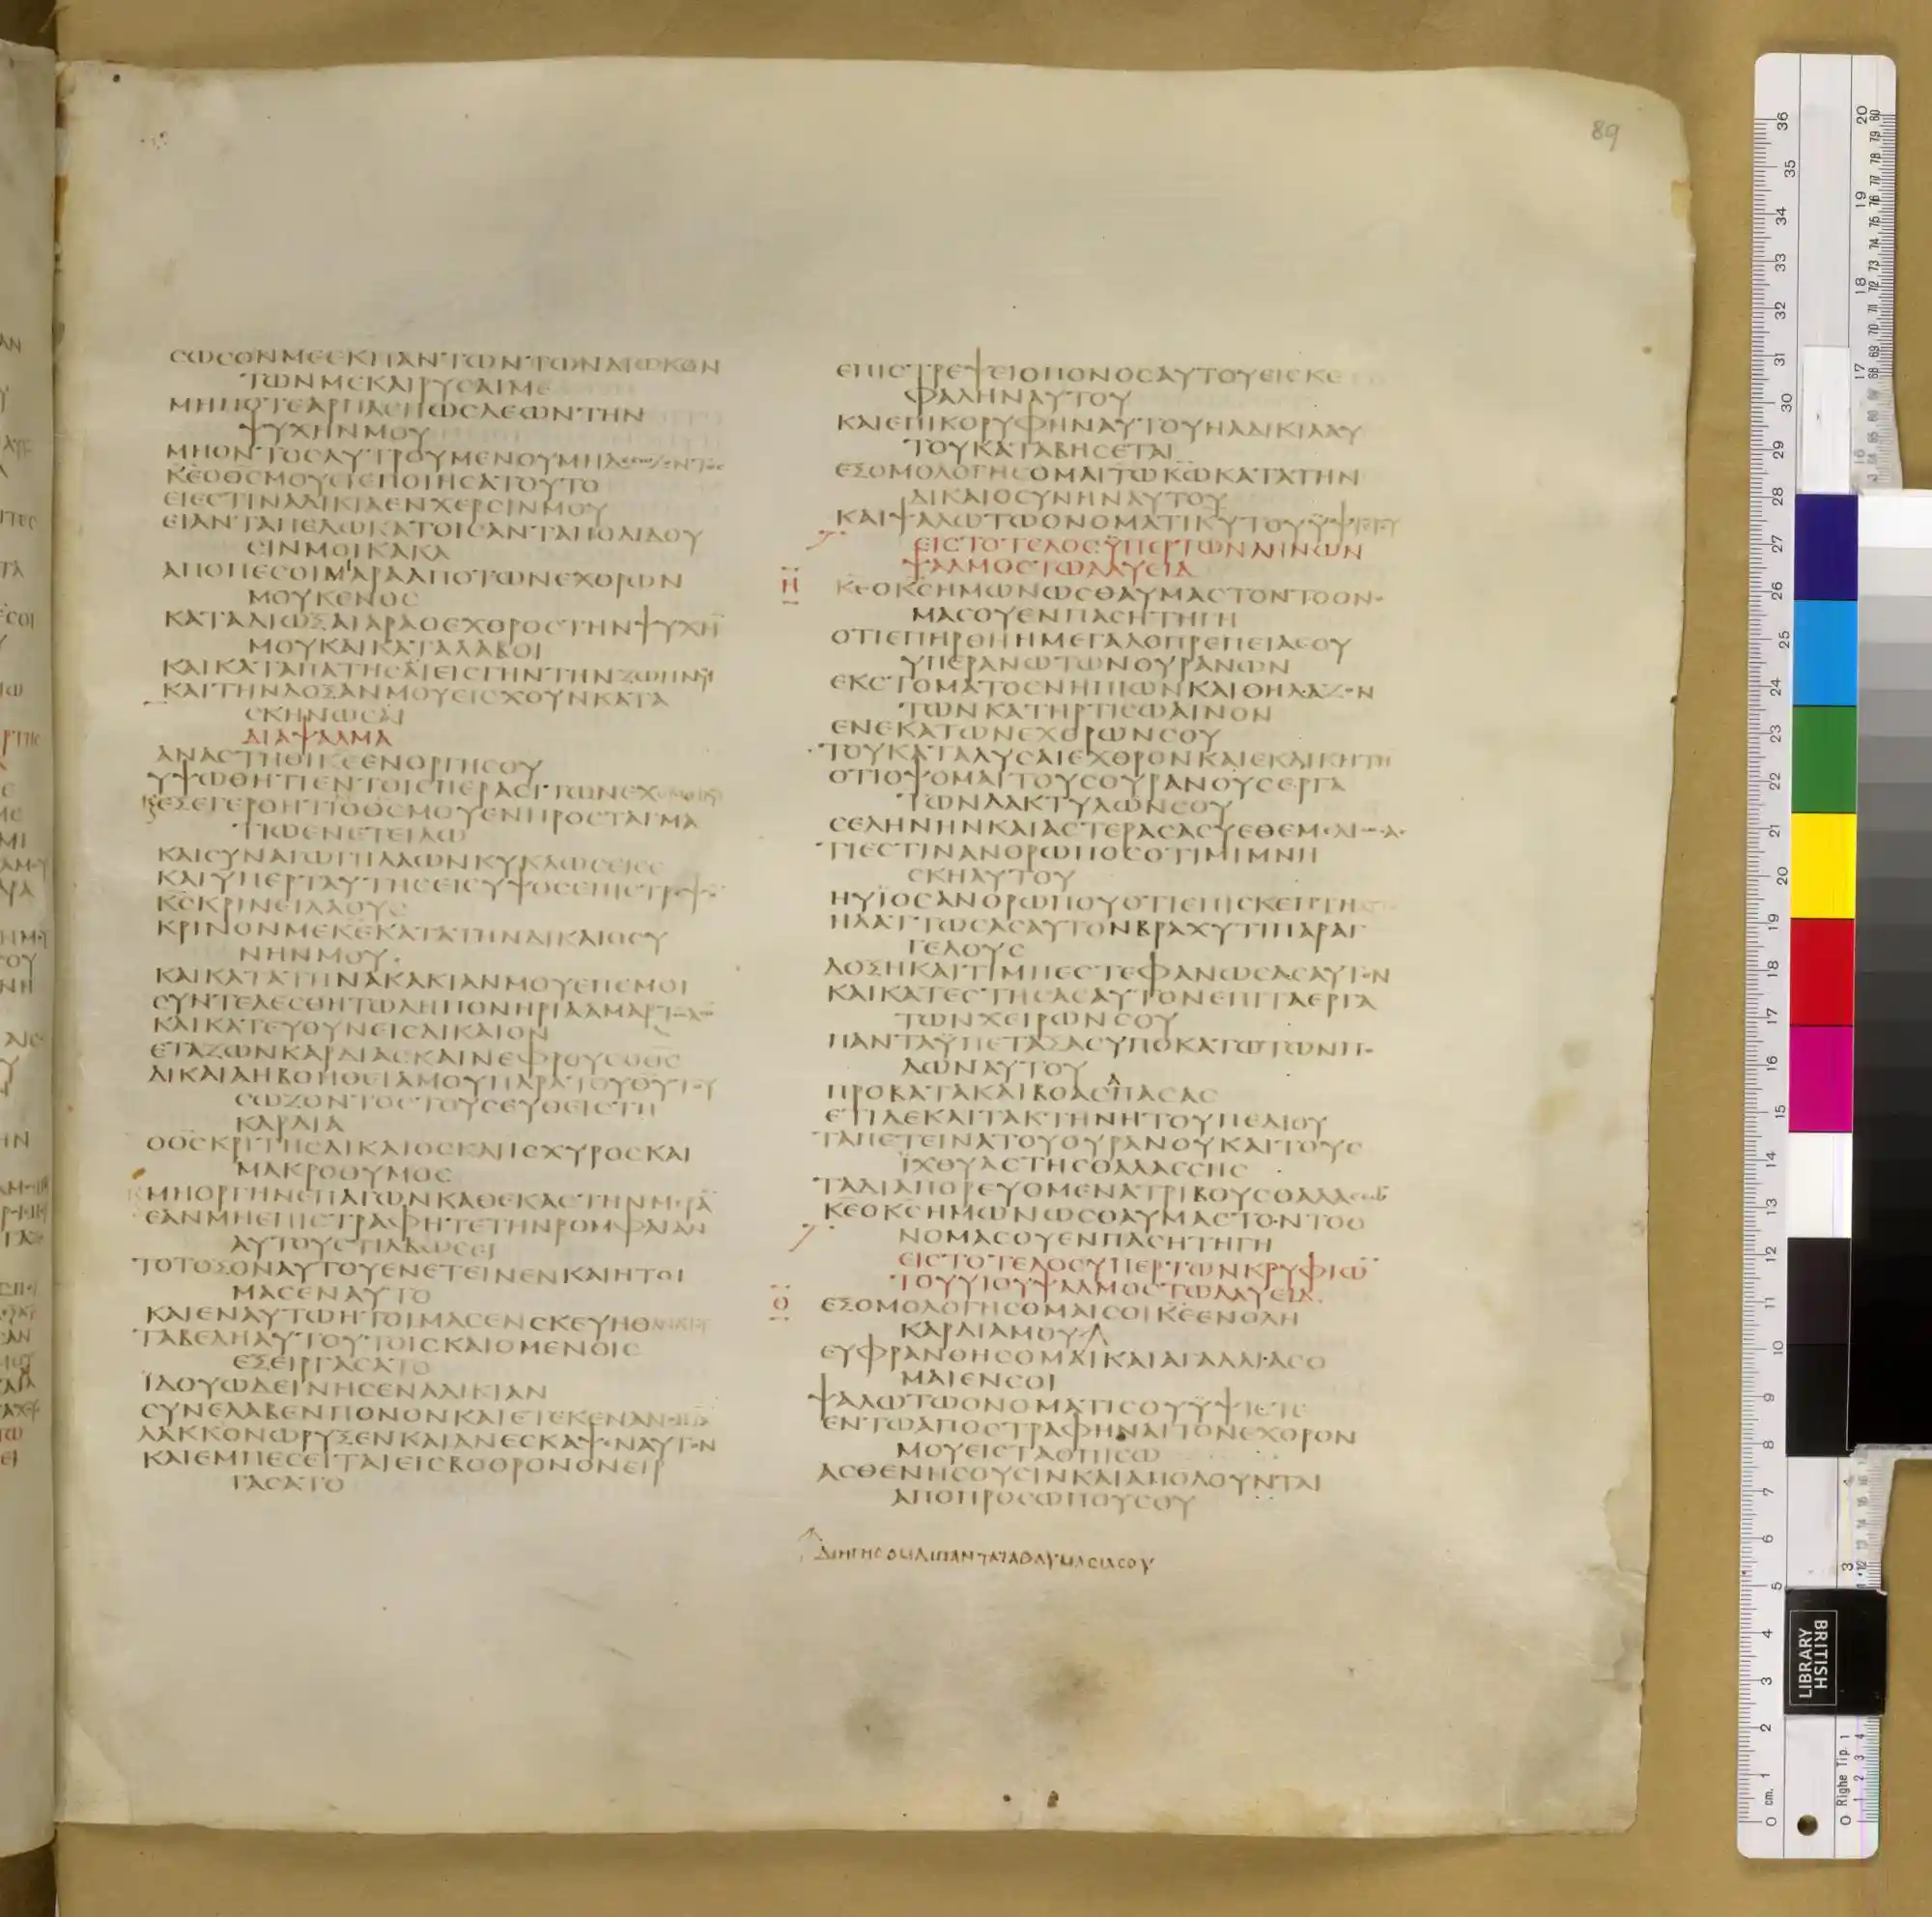 89
ΣΩΣΟΝΜΕΕΚΠΑΝΤΩΝΤΩΝΔΙΩΚΟΝ
ΤΩΝΜΕΚΑΙΡΥΣΑΙΜΕ
ΜΗΠΟΤΕΑΡΠΑΣΗΩΣΛΕΩΝΤΗΝ
ΨΥΧΗΝΜΟΥ
ΜΗΟΝΤΟΣΛΥΤΡΟΥΜΕΝΟΥΜΗΔΕΣΩΖΟΝΤΟΣ
Κ̅Ε̅Ο̅Θ̅Σ̅ΜΟΥΕΙΕΠΟΙΗΣΑΤΟΥΤΟ
ΕΙΕΣΤΙΝΑΔΙΚΙΑΕΝΧΕΡΣΙΝΜΟΥ
ΕΙΑΝΤΑΠΕΔΩΚΑΤΟΙΣΑΝΤΑΠΟΔΙΔΟΥ
ΣΙΝΜΟΙΚΑΚΑ
ΑΠΟΠΕΣΟΙΜΑΡΑΑΠΟΤΩΝΕΧΘΡΩΝ
ΜΟΥΚΕΝΟΣ
ΚΑΤΑΔΙΩΞΑΙΑΡΑΟΕΧΘΡΟΣΤΗΝΨΥΧΗ̅
ΜΟΥΚΑΙΚΑΤΑΛΑΒΟΙ
ΚΑΙΚΑΤΑΠΑΤΗΣΑΙΕΙΣΓΗΝΤΗΝΖΩΗΝΜΟΥ
ΚΑΙΤΗΝΔΟΞΑΝΜΟΥΕΙΣΧΟΥΝΚΑΤΑ
ΣΚΗΝΩΣΑΙ
ΔΙΑΨΑΛΜΑ
ΑΝΑΣΤΗΘΙΚ̅Ε̅ΕΝΟΡΓΗΣΟΥ
ΥΨΩΘΗΤΙΕΝΤΟΙΣΠΕΡΑΣΙΤΩΝΕΧ
ΕΞΕΓΕΡΘΗΤΙΟΘ̅Σ̅ΜΟΥΕΝΠΡΟΣΤΑΓΜΑ
ΤΙΩΕΝΕΤΕΙΛΩ
ΚΑΙΣΥΝΑΓΩΓΗΛΑΩΝΚΥΚΛΩΣΕΙΣΕ
ΚΑΙΥΠΕΡΤΑΥΤΗΣΕΙΣΥΨΟΣΕΠΙΣΤΡΕΨΟ̅
Κ̅Σ̅ΚΡΙΝΕΙΛΑΟΥΣ
ΚΡΙΝΟΝΜΕΚ̅Ε̅ΚΑΤΑΤΗΝΔΙΚΑΙΟΣΥ
ΝΗΝΜΟΥ
ΚΑΙΚΑΤΑΤΗΝΑΚΑΚΙΑΝΜΟΥΕΠΕΜΟΙ
ΣΥΝΤΕΛΕΣΘΗΤΩΔΗΠΟΝΗΡΙΑΑΜΑΡΤΩΛΩ̅
ΚΑΙΚΑΤΕΥΘΥΝΕΙΣΔΙΚΑΙΟΝ
ΕΤΑΖΩΝΚΑΡΔΙΑΣΚΑΙΝΕΦΡΟΥΣΟΘ̅Σ̅
ΔΙΚΑΙΑΗΒΟΗΘΕΙΑΜΟΥΠΑΡΑΤΟΥΘ̅Υ̅ΤΟΥ
ΣΩΖΟΝΤΟΣΤΟΥΣΕΥΘΕΙΣΤΗ
ΚΑΡΔΙΑ
ΟΘ̅Σ̅ΚΡΙΤΗΣΔΙΚΑΙΟΣΚΑΙΙΣΧΥΡΟΣΚΑΙ
ΜΑΚΡΟΘΥΜΟΣ
ΜΗΟΡΓΗΝΕΠΑΓΩΝΚΑΘΕΚΑΣΤΗΝΗΜΕΡΑ̅
ΕΑΝΜΗΕΠΙΣΤΡΑΦΗΤΕΤΗΝΡΟΜΦΑΙΑΝ
ΑΥΤΟΥΣΤΙΛΒΩΣΕΙ
ΤΟΤΟΞΟΝΑΥΤΟΥΕΝΕΤΕΙΝΕΝΚΑΙΗΤΟΙ
ΜΑΣΕΝΑΥΤΟ
ΚΑΙΕΝΑΥΤΩΗΤΟΙΜΑΣΕΝΣΚΕΥΗΘΑΝΑΤΟΥ
ΤΑΒΕΛΗΑΥΤΟΥΤΟΙΣΚΑΙΟΜΕΝΟΙΣ
ΕΞΕΙΡΓΑΣΑΤΟ
ΪΔΟΥΩΔΕΙΝΗΣΕΝΑΔΙΚΙΑΝ
ΣΥΝΕΛΑΒΕΝΠΟΝΟΝΚΑΙΕΤΕΚΕΝΑΝΟΜΙΑ̅
ΛΑΚΚΟΝΩΡΥΞΕΝΚΑΙΑΝΕΣΚΑΨΕΝΑΥΤΟΝ
ΚΑΙΕΜΠΕΣΕΙΤΑΙΕΙΣΒΟΘΡΟΝΟΝΕΙΡ
ΓΑΣΑΤΟ
ΕΠΙΣΤΡΕΨΕΙΟΠΟΝΟΣΑΥΤΟΥΕΙΣΚΕ
ΦΑΛΗΝΑΥΤΟΥ
ΚΑΙΕΠΙΚΟΡΥΦΗΝΑΥΤΟΥΗΑΔΙΚΙΑΑΥ
ΤΟΥΚΑΤΑΒΗΣΕΤΑΙ
ΕΞΟΜΟΛΟΓΗΣΟΜΑΙΤΩΚ̅Ω̅ΚΑΤΑΤΗΝ
ΔΙΚΑΙΟΣΥΝΗΝΑΥΤΟΥ
ΚΑΙΨΑΛΩΤΩΟΝΟΜΑΤΙΚ̅Υ̅ΤΟΥΫΨΙΣΤΟΥ
ΕΙΣΤΟΤΕΛΟΣΫΠΕΡΤΩΝΛΗΝΩΝ
ΨΑΛΜΟΣΤΩΔΑΥΕΙΔ
Η̅
Κ̅Ε̅ΟΚ̅Σ̅ΗΜΩΝΩΣΘΑΥΜΑΣΤΟΝΤΟΟΝΟ
ΜΑΣΟΥΕΝΠΑΣΗΤΗΓΗ
ΟΤΙΕΠΗΡΘΗΗΜΕΓΑΛΟΠΡΕΠΕΙΑΣΟΥ
ΥΠΕΡΑΝΩΤΩΝΟΥΡΑΝΩΝ
ΕΚΣΤΟΜΑΤΟΣΝΗΠΙΩΝΚΑΙΘΗΛΑΖΟΝ
ΤΩΝΚΑΤΗΡΤΙΣΩΑΙΝΟΝ
ΕΝΕΚΑΤΩΝΕΧΘΡΩΝΣΟΥ
ΤΟΥΚΑΤΑΛΥΣΑΙΕΧΘΡΟΝΚΑΙΕΚΔΙΚΗΤΗ
ΟΤΙΟΨΟΜΑΙΤΟΥΣΟΥΡΑΝΟΥΣΕΡΓΑ
ΤΩΝΔΑΚΤΥΛΩΝΣΟΥ
ΣΕΛΗΝΗΝΚΑΙΑΣΤΕΡΑΣΑΣΥΕΘΕΜΕΛΙΩΣΑΣ
ΤΙΕΣΤΙΝΑΝΘΡΩΠΟΣΟΤΙΜΙΜΝΗ
ΣΚΗΑΥΤΟΥ
ΗΥΪΟΣΑΝΘΡΩΠΟΥΟΤΙΕΠΙΣΚΕΠΤΗ
ΗΛΑΤΤΩΣΑΣΑΥΤΟΝΒΡΑΧΥΤΙΠΑΡΑΓ
ΓΕΛΟΥΣ
ΔΟΞΗΚΑΙΤΙΜΗΕΣΤΕΦΑΝΩΣΑΣΑΥΤΟΝ
ΚΑΙΚΑΤΕΣΤΗΣΑΣΑΥΤΟΝΕΠΙΤΑΕΡΓΑ
ΤΩΝΧΕΙΡΩΝΣΟΥ
ΠΑΝΤΑΫΠΕΤΑΞΑΣΥΠΟΚΑΤΩΤΩΝΠΟ
ΔΩΝΑΥΤΟΥ
ΠΡΟΒΑΤΑΚΑΙΒΟΑΣΠΑΣΑΣ
ΕΤΙΔΕΚΑΙΤΑΚΤΗΝΗΤΟΥΠΕΔΙΟΥ
ΤΑΠΕΤΕΙΝΑΤΟΥΟΥΡΑΝΟΥΚΑΙΤΟΥΣ
ΪΧΘΥΑΣΤΗΣΘΑΛΑΣΣΗΣ
ΤΑΔΙΑΠΟΡΕΥΟΜΕΝΑΤΡΙΒΟΥΣΘΑΛΑΣΣΩ̅
Κ̅Ε̅ΟΚ̅Σ̅ΗΜΩΝΩΣΘΑΥΜΑΣΤΟΝΤΟΟ
ΝΟΜΑΣΟΥΕΝΠΑΣΗΤΗΓΗ
ΕΙΣΤΟΤΕΛΟΣΥΠΕΡΤΩΝΚΡΥΦΙΩ̅
ΤΟΥΥΙΟΥΨΑΛΜΟΣΤΩΔΑΥΕΙΔ
Θ̅
ΕΞΟΜΟΛΟΓΗΣΟΜΑΙΣΟΙΚ̅Ε̅ΕΝΟΛΗ
ΚΑΡΔΙΑΜΟΥ
ΕΥΦΡΑΝΘΗΣΟΜΑΙΚΑΙΑΓΑΛΛΙΑΣΟ
ΜΑΙΕΝΣΟΙ
ΨΑΛΩΤΩΟΝΟΜΑΤΙΣΟΥΫΨΙΣΤΕ
ΕΝΤΩΑΠΟΣΤΡΑΦΗΝΑΙΤΟΝΕΧΘΡΟΝ
ΜΟΥΕΙΣΤΑΟΠΙΣΩ
ΑΣΘΕΝΗΣΟΥΣΙΝΚΑΙΑΠΟΛΟΥΝΤΑΙ
ΑΠΟΠΡΟΣΩΠΟΥΣΟΥ
ΔΙΗΓΗΣΟΜΑΙΠΑΝΤΑΤΑΘΑΥΜΑΣΙΑΣΟΥ
BRITISH
LIBRARY
Righe Tip.
cm.